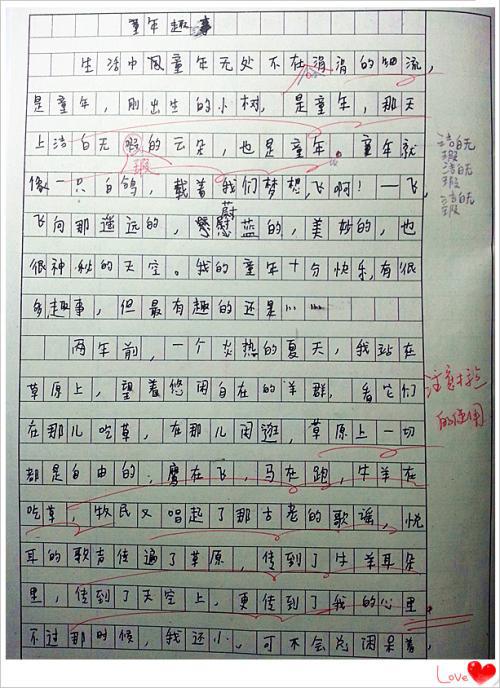 童年趣事
生活中风童年无处不在涓涓的细流，
是童年，刚出生的小树，是童年，那天
上洁白无暇的云朵，也是童年。童年就
瑕
像一只白鸽，载着我们梦想，飞啊！一飞，
飞向那遥远的，蔚蓝的，美妙的，也
很神秘的天空。我的童年十分快乐，有很
多趣事，但最有趣的还是……
两年前，一个炎热的夏天，我站在
草原上，望着悠闲自在的羊群，看它们
在那儿吃草，在那儿闲逛，草原上一切
都是自由的；鹰在飞，马在跑，牛羊在
吃草，牧民又唱起了那古老的歌谣，悦
耳的歌声传遍了草原，传到了牛羊耳朵
里，传到了天空上，更传到了我的心里。
不过那时候，我还小。可不会总闲呆着，
洁白无
瑕
洁白无
瑕
洁白无
瑕
注意标点
的使用
Love